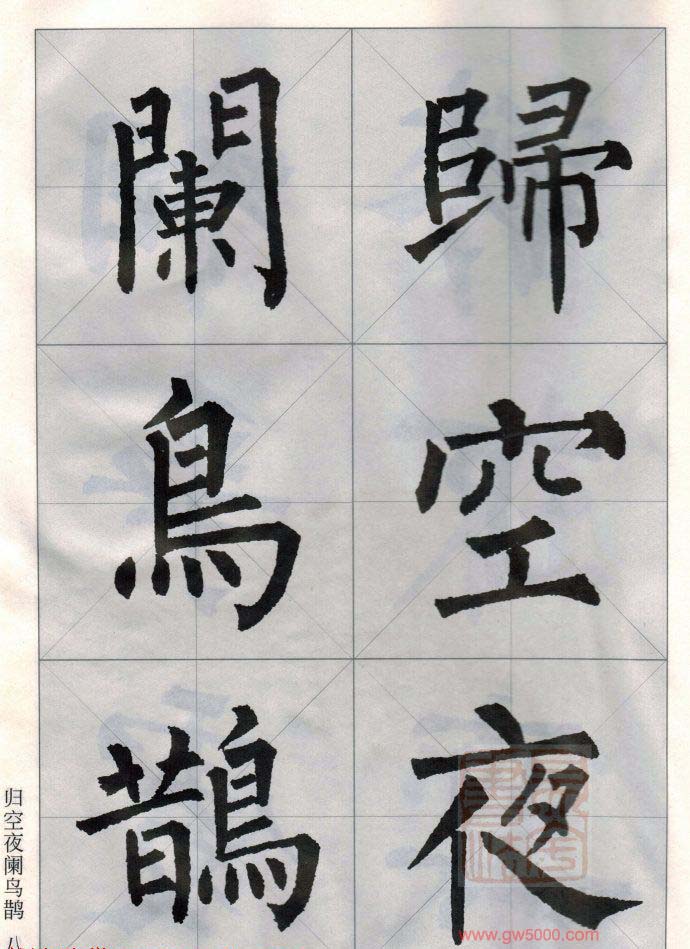 歸空夜
闌鳥鵲
归空夜阑鸟鹊 八
www.gw5000.com